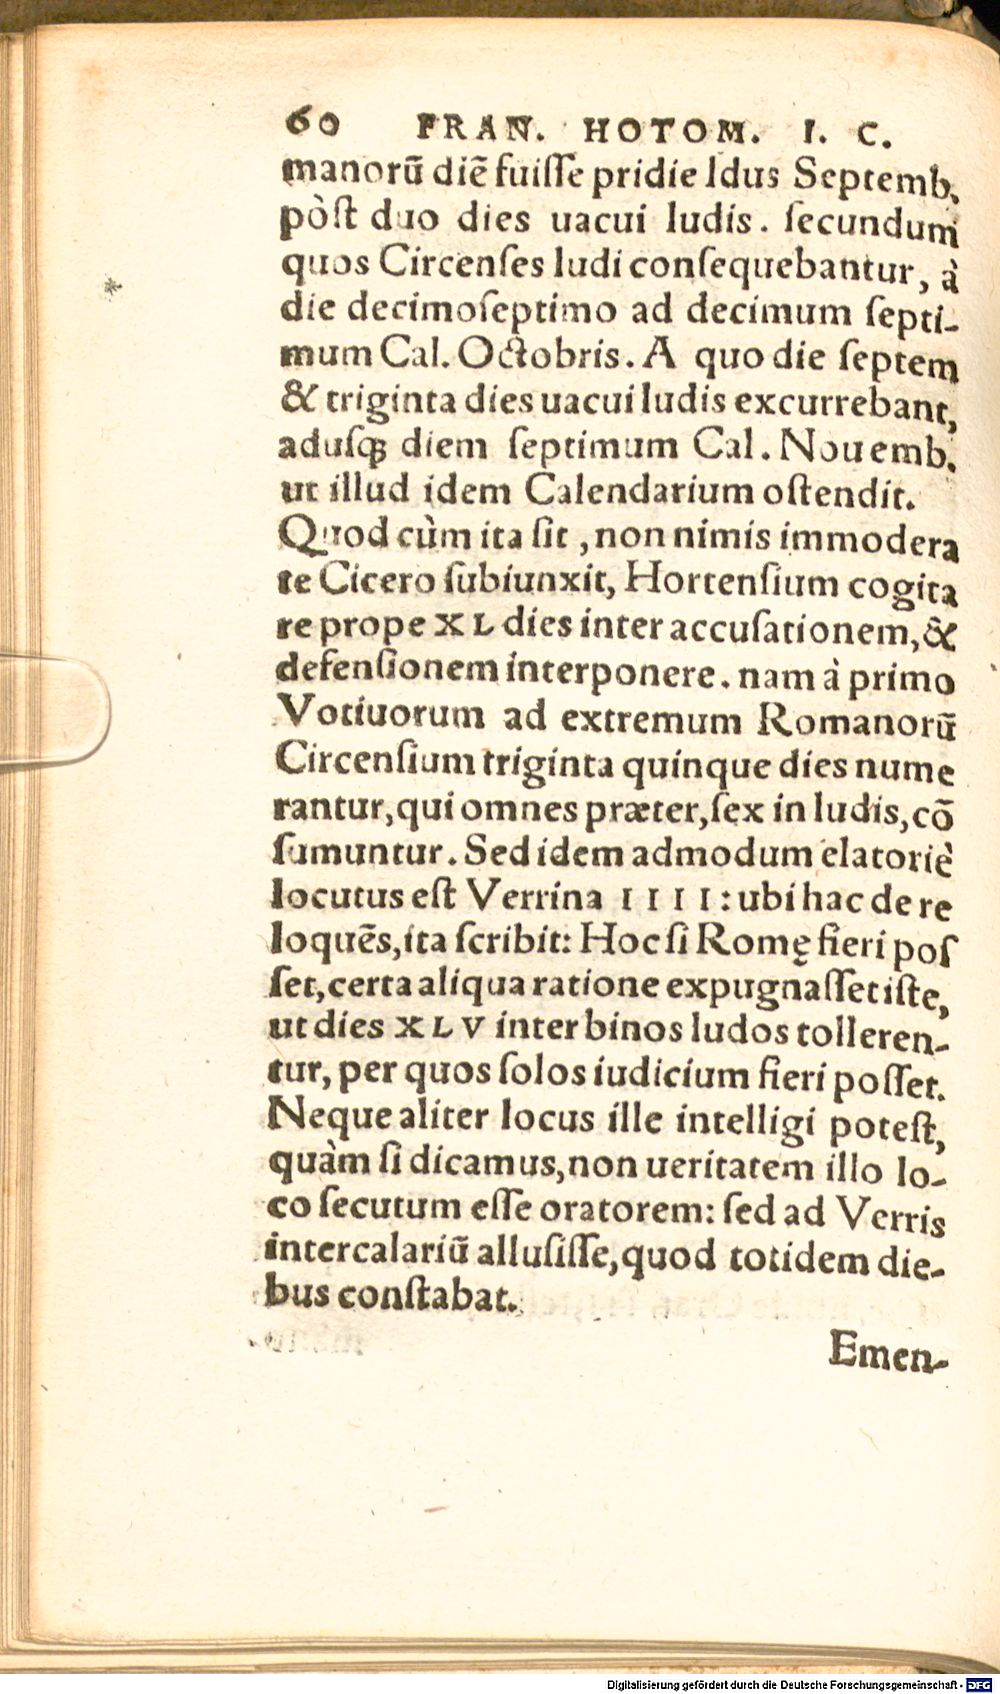 60 FRAN. HOTOM. I. C.
manorũ diẽ fuiſſe pridie Idus Septemb.
pòſt duo dies uacui ludis. ſecundum
quos Circenſes ludi conſequebantur, à
die decimoſeptimo ad decimum ſepti-
mum Cal. Octobris. A quo die ſeptem
& triginta dies uacui ludis excurrebant,
aduſq; diem ſeptimum Cal. Nouemb.
ut illud idem Calendarium oſtendit.
Quod cùm ita ſit, non nimis immodera
te Cicero ſubiunxit, Hortenſium cogita
re prope XL dies inter accuſationem, &
defenſionem interponere. nam à primo
Votiuorum ad extremum Romanorũ
Circenſium triginta quinque dies nume
rantur, qui omnes præter, ſex in ludis, cõ
ſumuntur. Sed idem admodum elatoriè
locutus eſt Verrina IIII: ubi hac de re
loquẽs, ita ſcribit: Hoc ſi Romę fieri poſ
ſet, certa aliqua ratione expugnaſſet iſte,
ut dies XLV inter binos ludos tolleren-
tur, per quos ſolos iudicium fieri poſſet.
Neque aliter locus ille intelligi poteſt,
quàm ſi dicamus, non ueritatem illo lo-
co ſecutum eſſe oratorem: ſed ad Verris
intercalariũ alluſiſſe, quod totidem die-
bus conſtabat.
Emen-
Digitalisierung gefördert durch die Deutsche Forschungsgemeinschaft - DFG